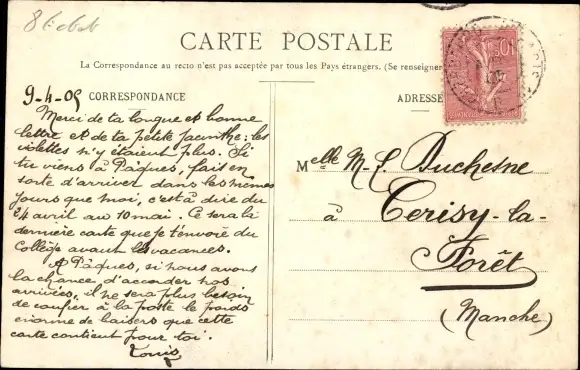 CARTE POSTALE
La Correspondance au recto n'est pas acceptée par tous les Pays étrangers. (Se renseigner
9-4-05 CORRESPONDANCE
ADRESSE
Merci de ta longue et bonne
lettre et de ta petite jacinthe : les
violettes n'y étaient plus. Si
tu viens à Pâques, fais en
sorte d'arriver dans les mêmes
jours que moi, c'est à dire du
24 avril au 10 mai. Ce sera la
dernière carte que je t'envoie du
Collège avant les vacances.
A Pâques, si nous avons
la chance d'accorder nos
arrivées, il ne sera plus besoin
de confier à la poste le poids
énorme de baisers que cette
carte contient pour toi.
Louis
Melle M. L. Duchesne
à Cerisy-la-
Forêt
(Manche)